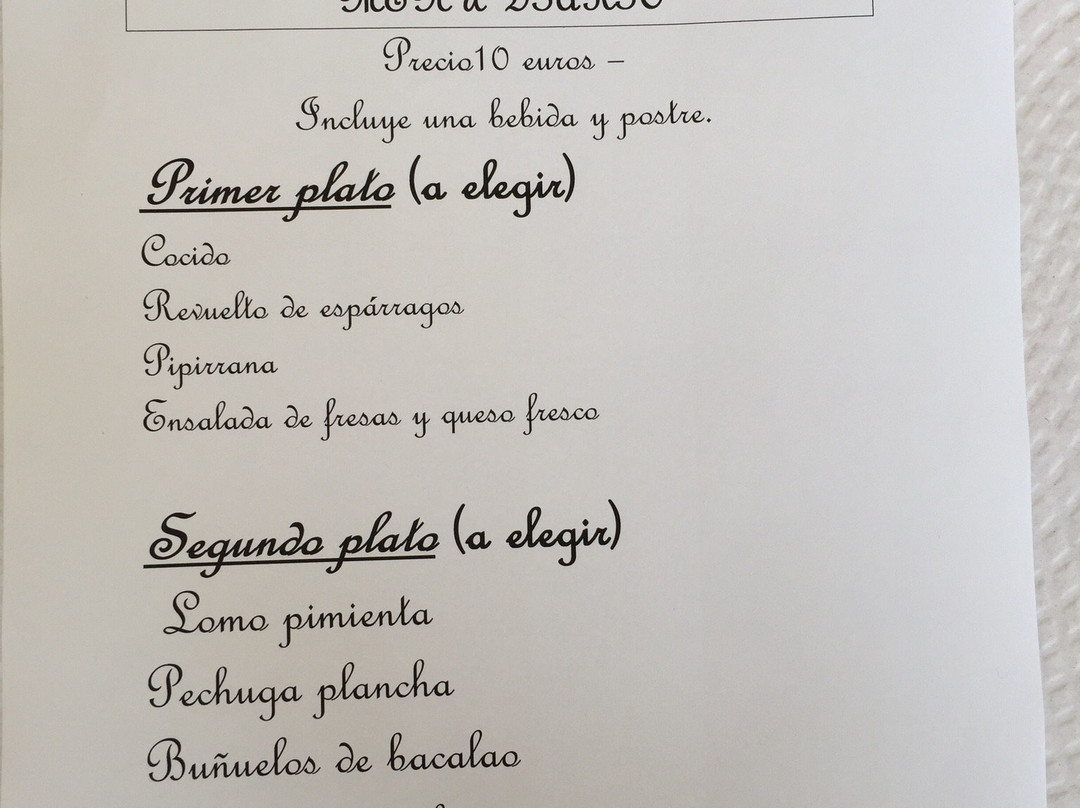 Precio10 euros –
Incluye una bebida y postre.
Primer plato (a elegir)
Cocido
Revuelto de espárragos
Pipirrana
Ensalada de fresas y queso fresco
Segundo plato (a elegir)
Lomo pimienta
Pechuga plancha
Buñuelos de bacalao